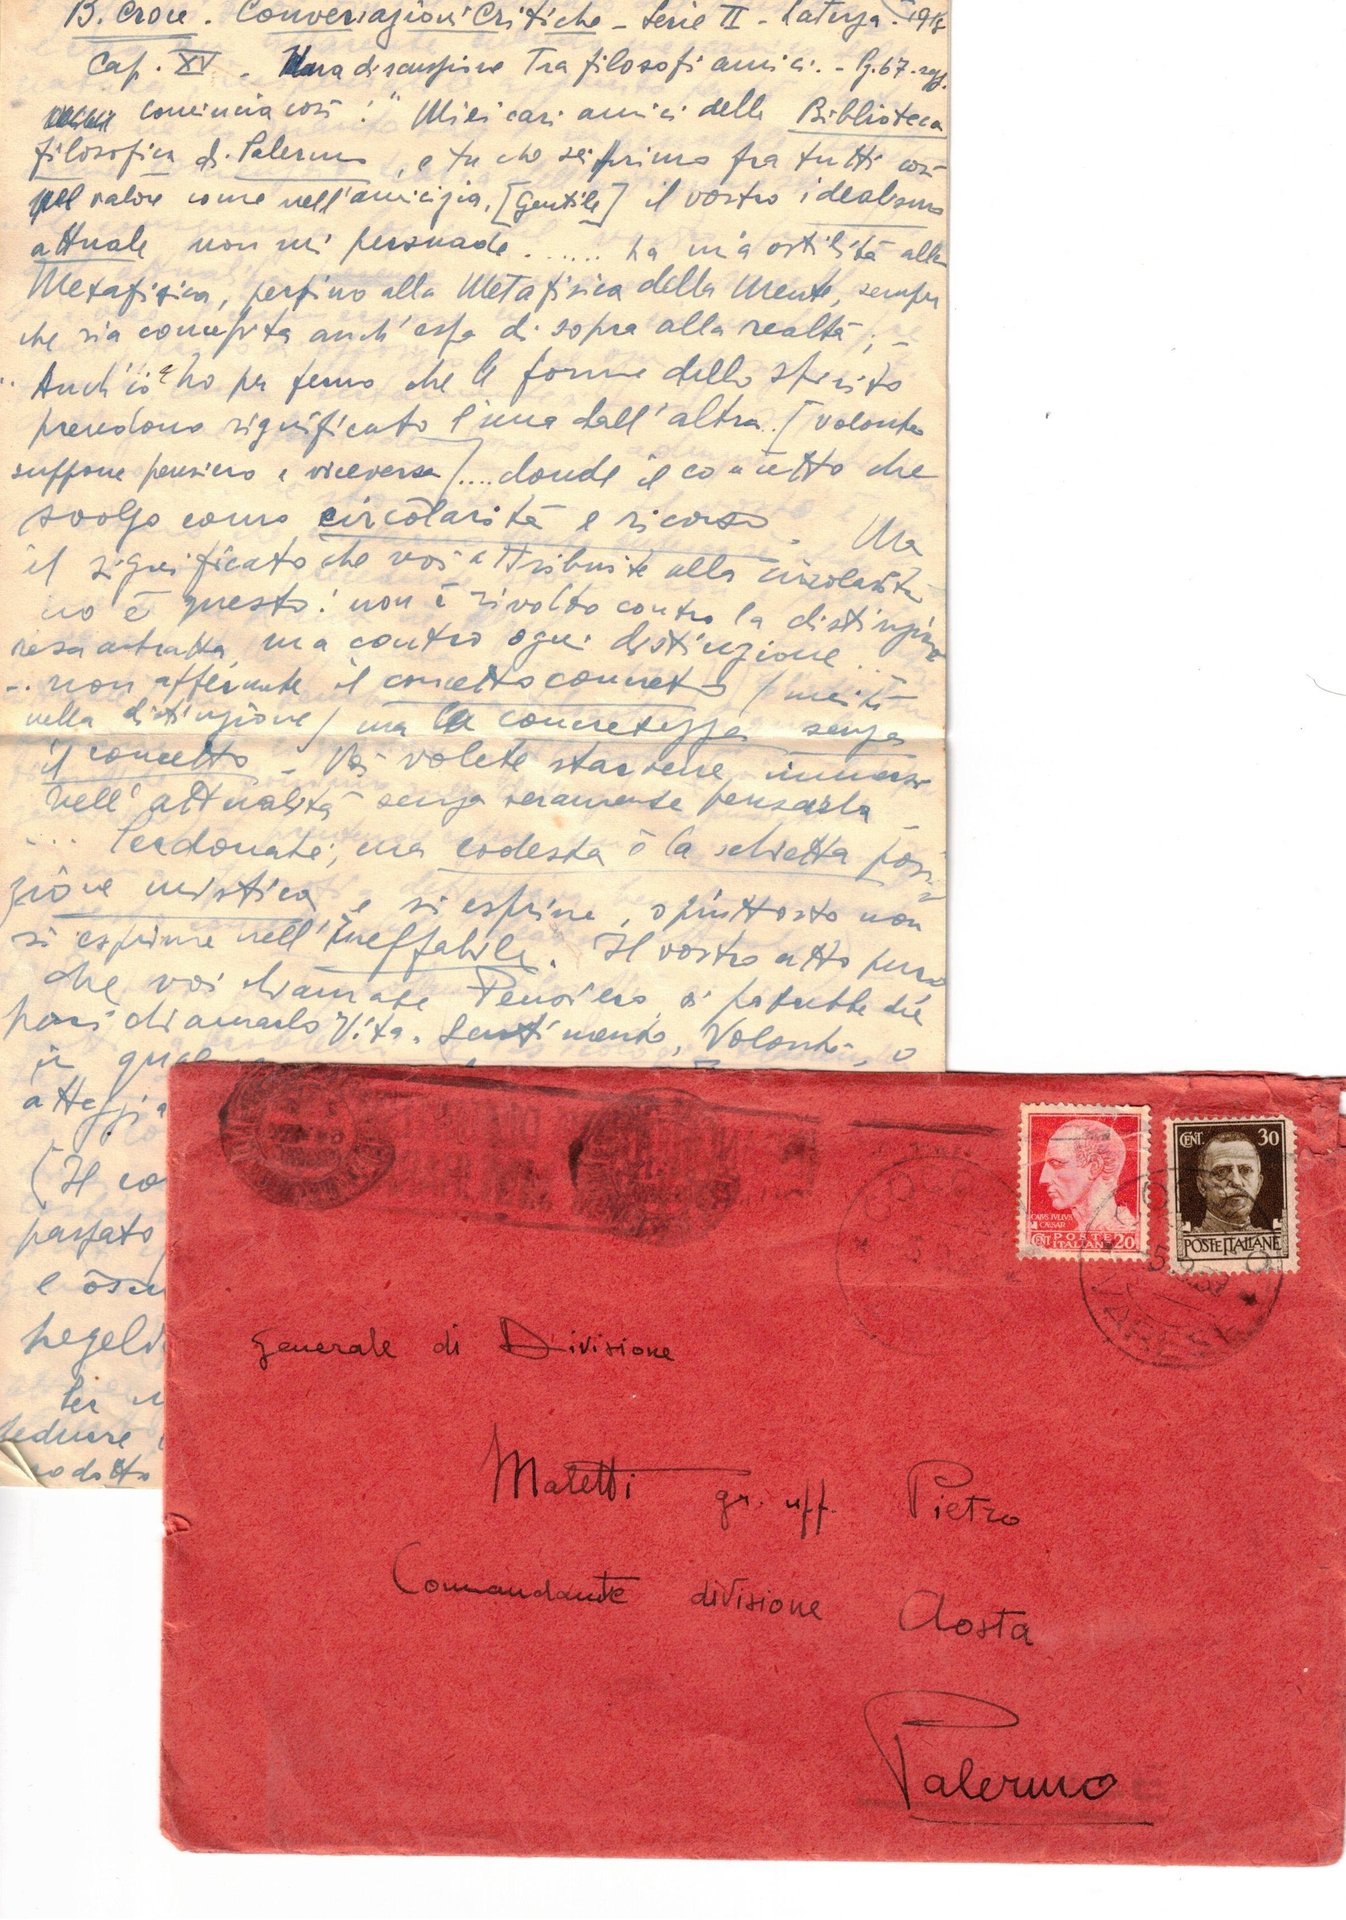 B. Croce. Conversazioni Critiche - Serie II - Laterza - 1918
Cap. XV. Una discussione tra filosofi amici. - Pg. 67. sgg.
comincia così: "Miei cari amici della Biblioteca
filosofica di Palermo, e tu che sei primo fra tutti così
nel valore come nell'amicizia, [Gentile] il vostro idealismo
attuale non mi persuade ....... la mia ostilità alla
Metafisica, perfino alla Metafisica della Mente, sempre
che sia concepita anch'essa di sopra alla realtà; -
.. Anch'io ho per fermo che le forme dello spirito
prendono significato l'una dall'altra. [volontà
suppone pensiero e viceversa] .... donde il concetto che
svolgo come circolarità e ricorso. Ma
il significato che voi attribuite alla circolarità
no è questo: non è rivolto contro la distinzione
resa astratta, ma contro ogni distinzione ..
... non affermate il concetto concreto / unità
nella distinzione / ma la concretezza senza
il concetto - Voi volete starvene immersi
nell'attualità senza veramente pensarla -
... Perdonate, ma codesta è la schietta posi-
zione mistica e si esprime, o piuttosto non
si esprime nell'Ineffabile. Il vostro atto puro
che voi chiamate Pensiero si potrebbe del
pari chiamarlo Vita, Sentimento, Volontà, o
in
atteggia
(Il co
passato
e
hegeli
Per
dedurre
CAIUS IULIUS
CAESAR
POSTE
CENT. ITALIANE 20
CENT. 30
POSTE ITALIANE
VARESE
Generale di Divisione
Maletti gr. uff. Pietro
Comandante divisione Aosta
Palermo